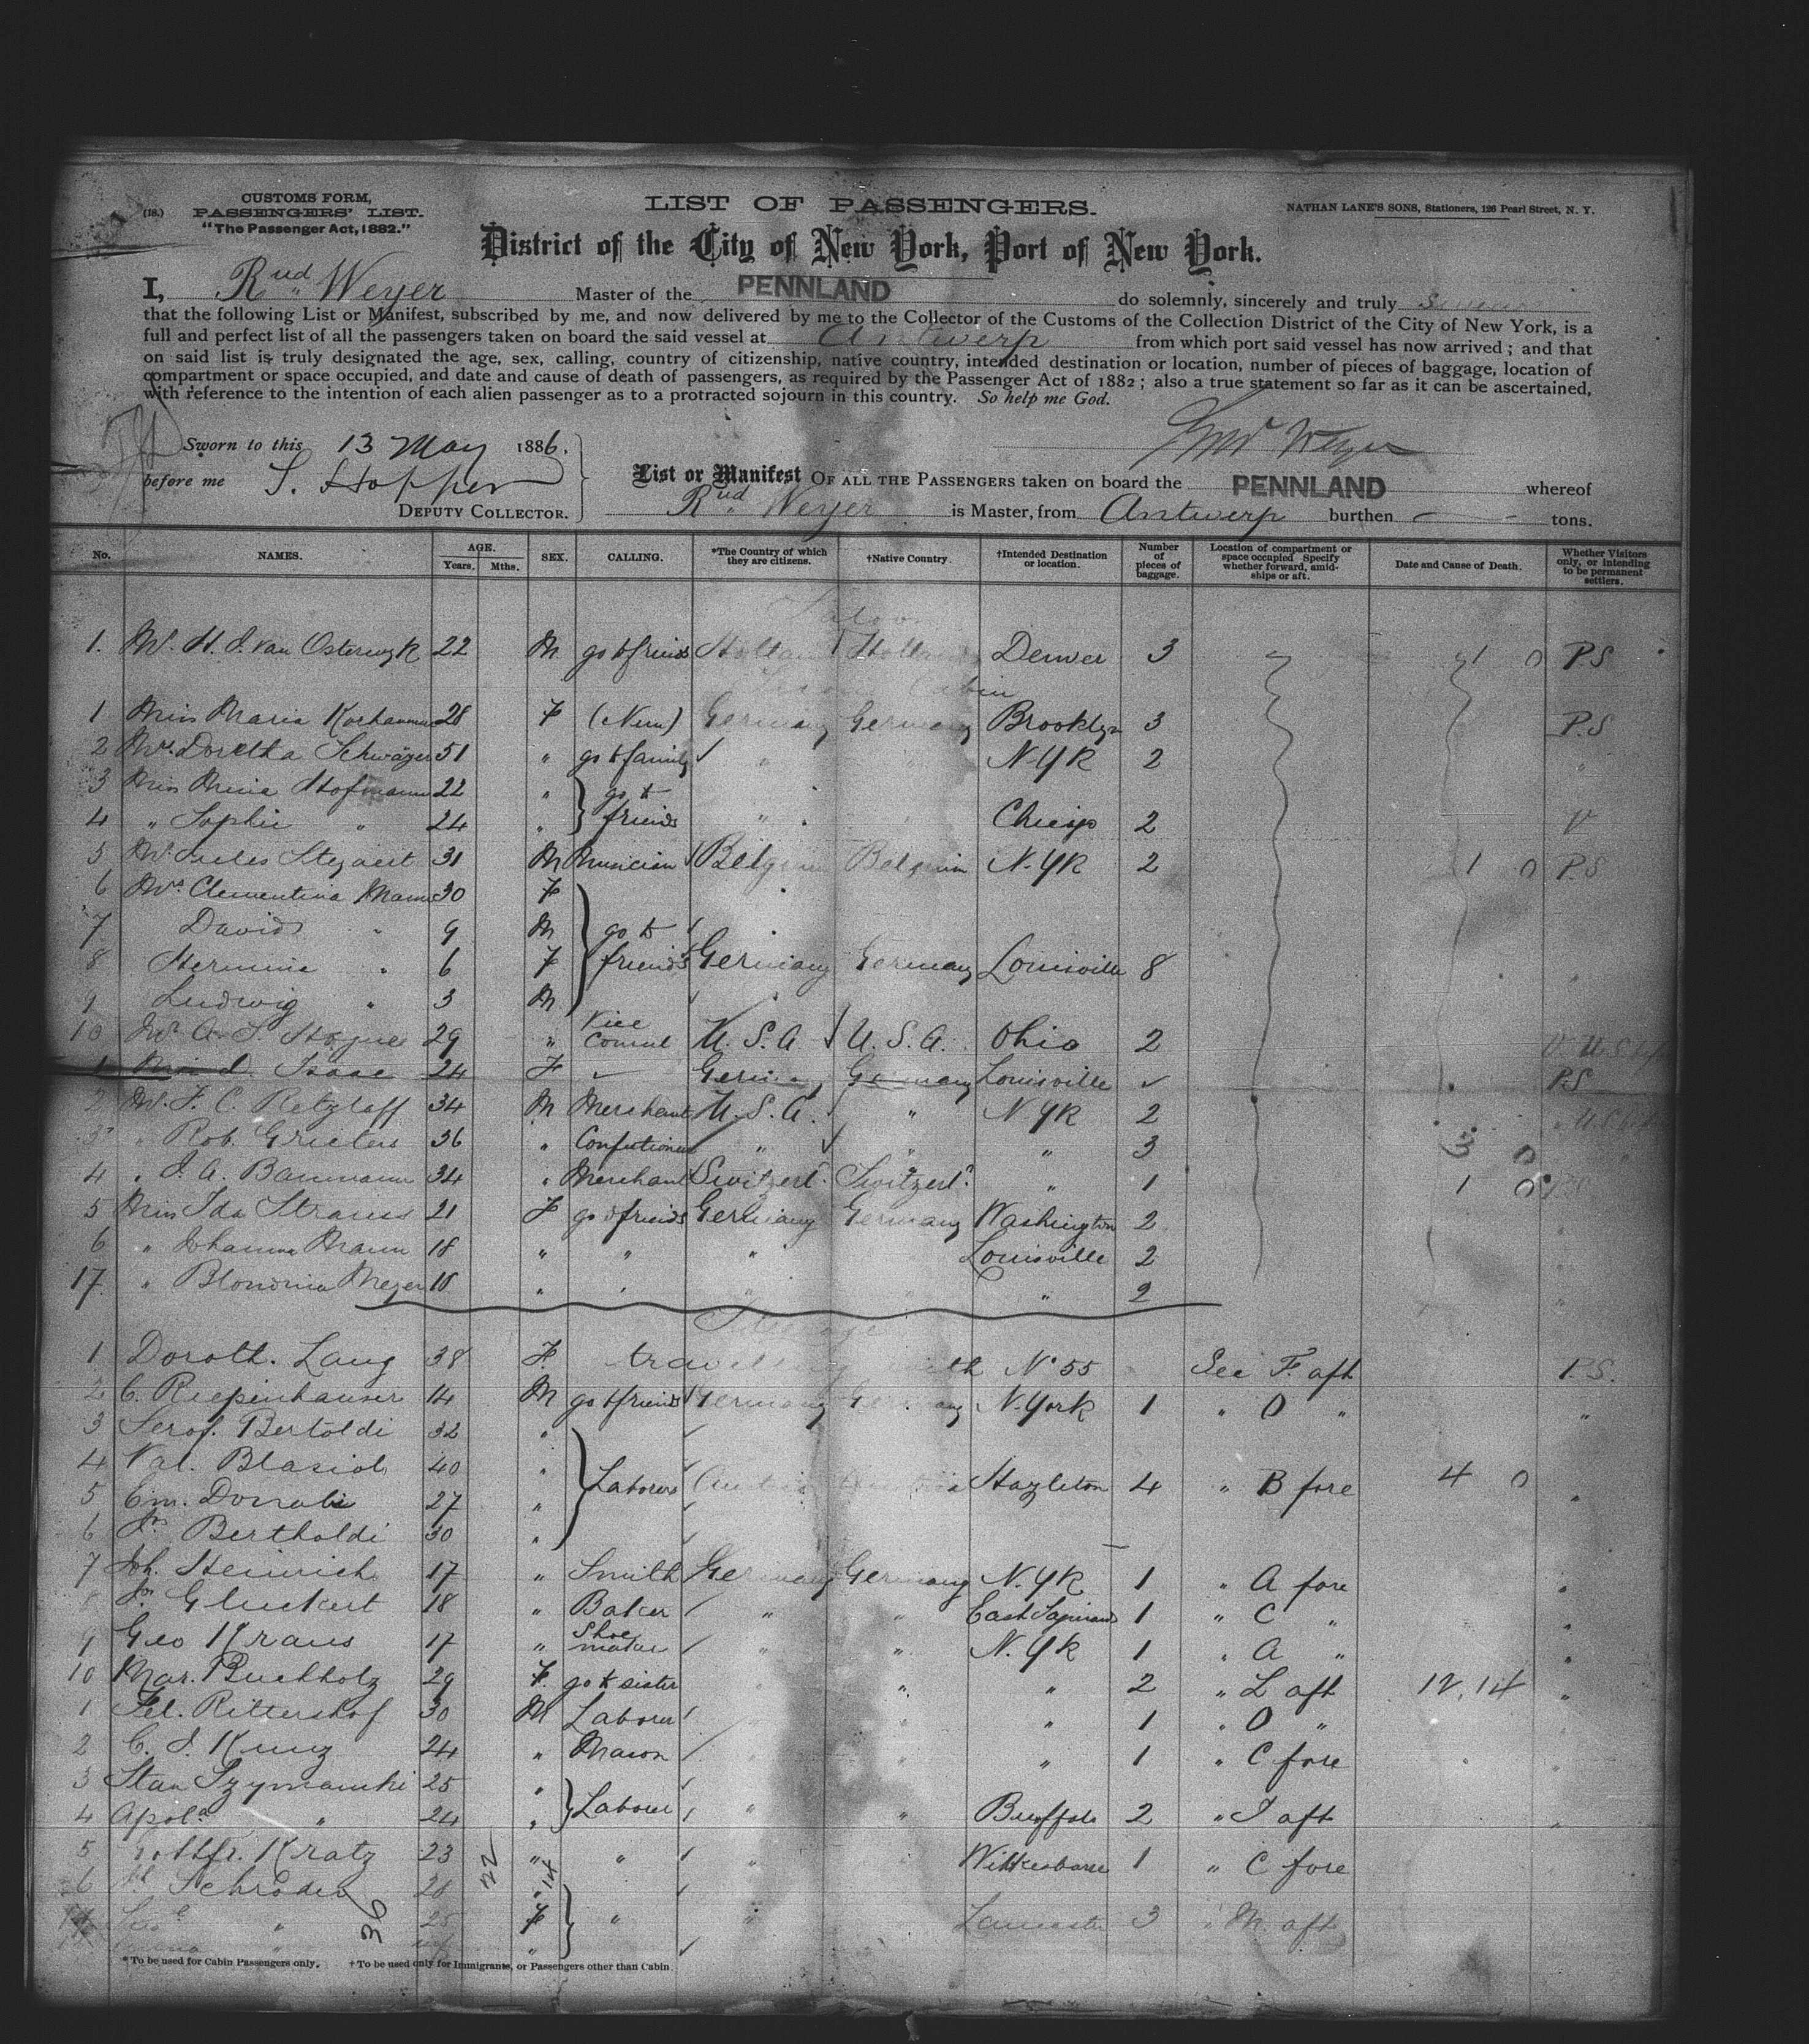 (18.)
CUSTOMS FORM,
PASSENGERS' LIST.
"The Passenger Act, 1882."
LIST OF PASSENGERS.
NATHAN LANE'S SONS, Stationers, 126 Pearl Street, N. Y.
District of the City of New York, Port of New York.
I, Rud. Weyer Master of the PENNLAND do solemnly, sincerely and truly swear
that the following List or Manifest, subscribed by me, and now delivered by me to the Collector of the Customs of the Collection District of the City of New York, is a
full and perfect list of all the passengers taken on board the said vessel at Antwerp from which port said vessel has now arrived; and that
on said list is truly designated the age, sex, calling, country of citizenship, native country, intended destination or location, number of pieces of baggage, location of
compartment or space occupied, and date and cause of death of passengers, as required by the Passenger Act of 1882; also a true statement so far as it can be ascertained,
with reference to the intention of each alien passenger as to a protracted sojourn in this country. So help me God.
Rud Weyer
Sworn to this 13 May 1886.
before me S. Hopper
DEPUTY COLLECTOR.
List or Manifest OF ALL THE PASSENGERS taken on board the PENNLAND whereof
Rud. Weyer is Master, from Antwerp burthen — tons.
No. NAMES. AGE. Years. Mths. SEX. CALLING. *The Country of which they are citizens. †Native Country. †Intended Destination or location. Number of pieces of baggage. Location of compartment or space occupied Specify whether forward, amidships or aft. Date and Cause of Death. Whether Visitors only, or intending to be permanent settlers.
Saloon
1. Mr. H. J. van Osterwyk 22 M go to friends Holland Holland Denver 3 1 0 P.S
Cabin
1 Miss Maria 28 F (Nun) Germany Germany Brooklyn 3 P.S
2 Mrs. Doretha Schwäger 51 " go to family " N-YR 2 "
3 Miss Mina Hofmann 22 " go to
4 " Sophie " 24 " friends " Chicago 2 V
5 Mr Jules Steyaert 31 M Musician Belgium Belgium N-YR 2 1 0 P.S
6 Mrs Clementina Mann 30 F
7 David " 9 M go to
8 Hermine " 6 F friends Germany Germany Louisville 8 "
9 Ludwig " 3 M
10 Mr A. S. Hogue 29 " Vice Consul U.S.A. U.S.A. Ohio 2
1 Miss D. Isaac 24 F Germany Germany Louisville P.S
2 Mr. F. C. Retzlaff 34 M Merchant U.S.A. " N YR 2
3 " Rob. 36 " Confectioner " " " 3 3 0
4 " J. A. Baumann 34 " Merchant Switzerl. Switzerl. " 1 1 0
5 Miss Ida Strauss 21 F go to friends Germany Germany Washington 2
6 " Johanna 18 " " " Louisville 2
17. " Meyer 18 " " " " " 2
Steerage
1 Doroth. Lang 38 F. travelling with No 55 See F. aft P.S.
2 C. Riepenhauser 14 M go to friends Germany Germany N-York 1 " O " "
3 Seraf. Bertoldi 32 "
4 Val. Blasiol 40 " Laborers Austria Austria Hazleton 4 " B fore 4 0
5 Em. Donati 27 " "
6 Jos Bertholdi 30 "
7 Joh. Heinrich 17 " Smith Germany Germany N.YR 1 " A fore "
8 Gluckert 18 " Baker " " East Saginaw 1 " C " "
9 Geo Kraus 17 " Shoe maker " " N.YR 1 " A " "
10 Mar. Buchholz 29 F. go to sister " " " 2 " L aft 12,14 "
1 Fel. Rittershof 30 M Laborer " " " 1 " O " "
2 C. J. Kunz 24 " Mason " " " 1 " C fore "
3 Stan Szymanski 25 "
4 Apola " 24 " Laborer " " Buffalo 2 " I aft "
5 Gottfr. Kratz 23 " " " Wilkesbarre 1 " C fore
6 Schröder 28 "
" 25 F " " Lancaster 3 " M. aft
" inf "
36 22 14
* To be used for Cabin Passengers only. † To be used only for Immigrants, or Passengers other than Cabin